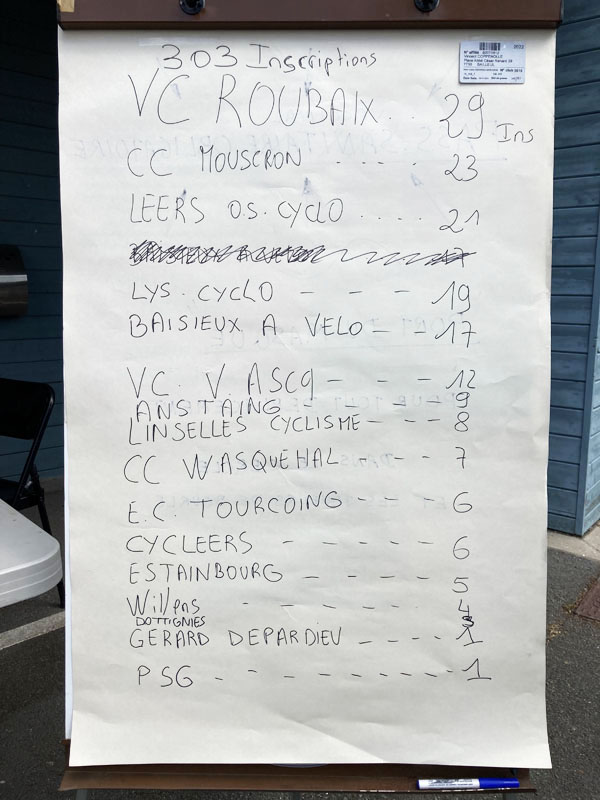 303 Inscriptions
VC ROUBAIX . . 29 Ins
CC MOUSCRON . . . . 23
LEERS O.S. CYCLO . . . . 21
LYS. CYCLO - - - 19
BAISIEUX A VELO - - 17
VC. V ASCQ - - - 12
ANSTAING - - - 9
LINSELLES CYCLISME - - - 8
CC WASQUEHAL - - - 7
E.C. TOURCOING - - - 6
CYCLEERS - - - - - 6
ESTAINBOURG - - - - 5
Willems - - - - - 4
DOTTIGNIES 3
GERARD DEPARDIEU - - - - 1
PSG - - - - - - - - 1